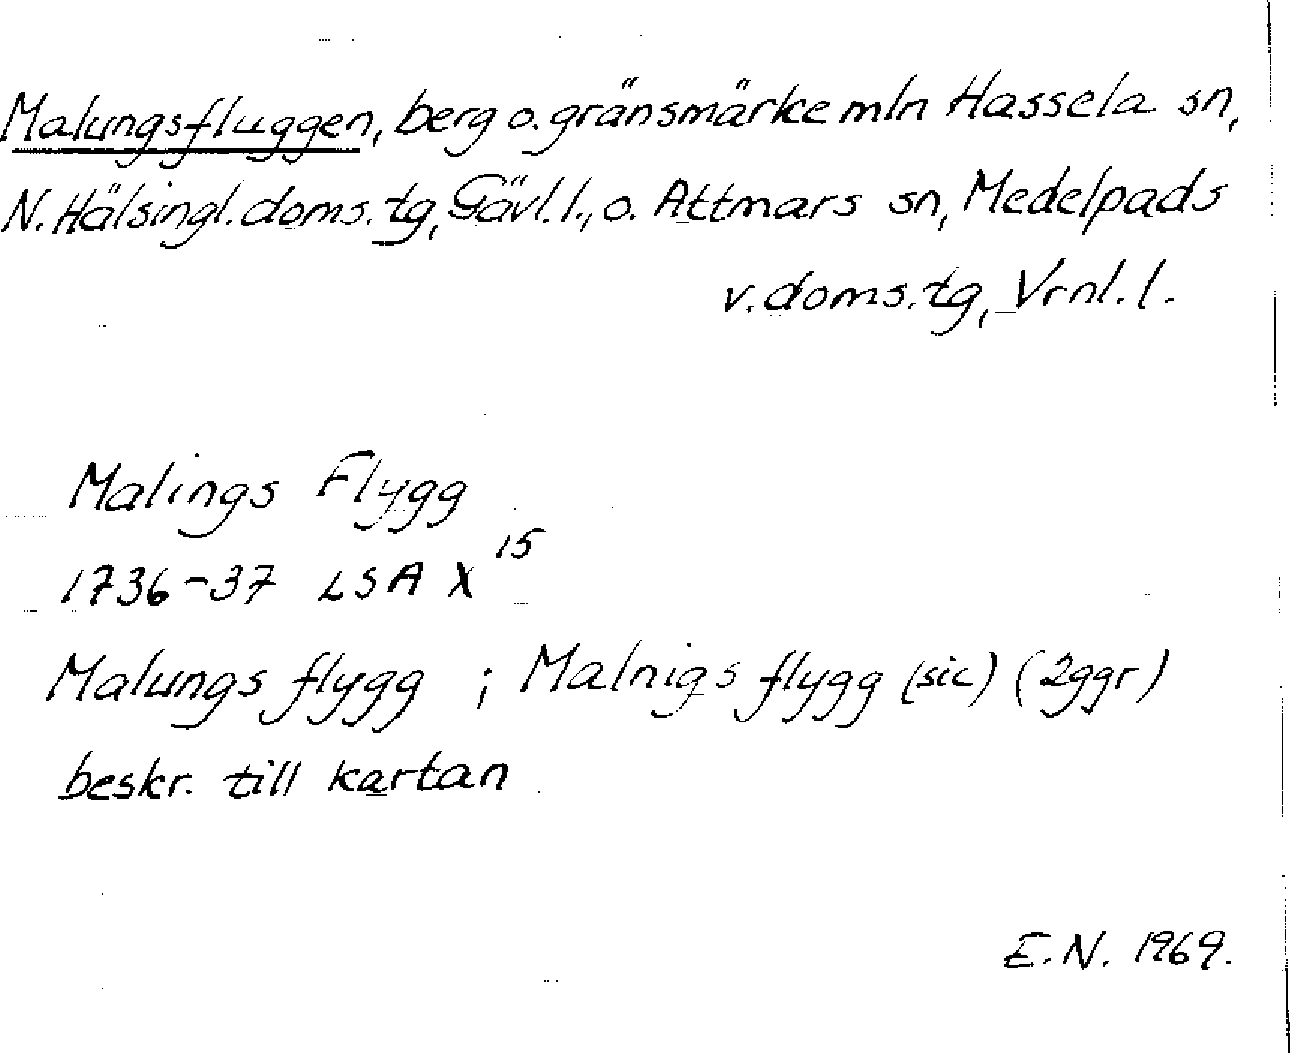 Malungsfluggen, berg o. gränsmärke mln Hassela sn,
N. Hälsingl. doms. tg, Gävl. l., o. Attmars sn, Medelpads
v. doms. tg, Vrnl. l.
Malings Flygg
1736-37 LSA X 15
Malungs flygg ; Malnigs flygg (sic) (2ggr)
beskr. till kartan
E.N. 1969.